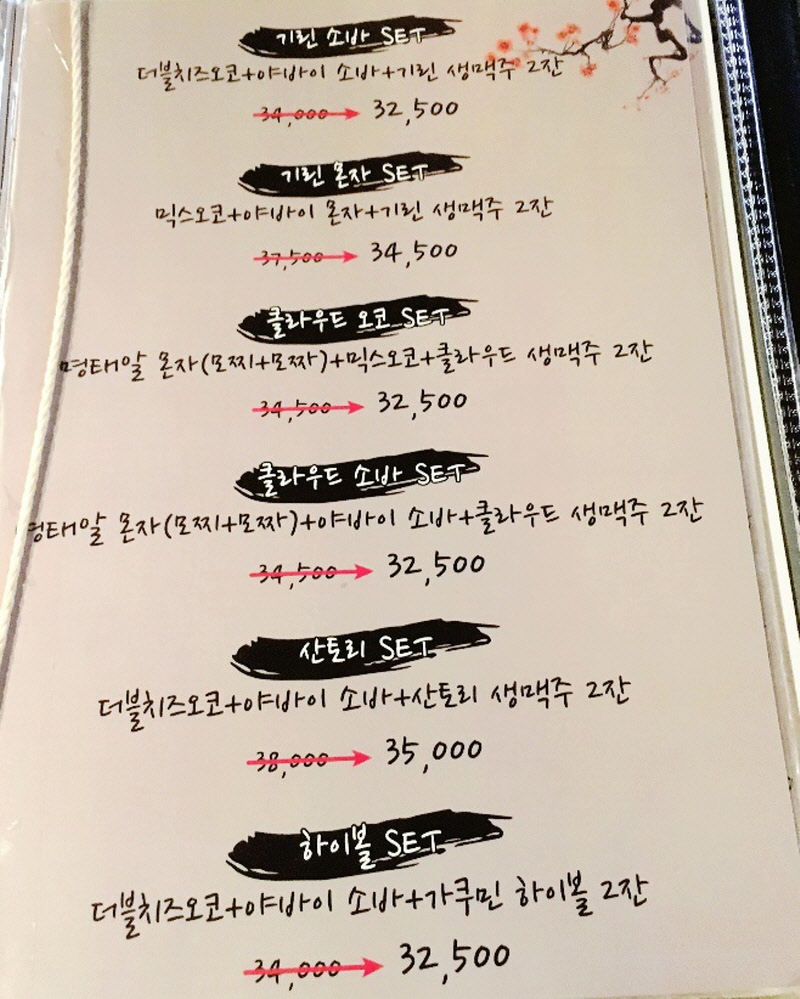 기린 소바 SET
더블치즈오코+야바이 소바+기린 생맥주 2잔
34,000 → 32,500
기린 몬자 SET
믹스오코+야바이 몬자+기린 생맥주 2잔
37,500 → 34,500
클라우드 오코 SET
명태알 몬자(모찌+모짜)+믹스오코+클라우드 생맥주 2잔
34,500 → 32,500
클라우드 소바 SET
명태알 몬자(모찌+모짜)+야바이 소바+클라우드 생맥주 2잔
34,500 → 32,500
산토리 SET
더블치즈오코+야바이 소바+산토리 생맥주 2잔
38,000 → 35,000
하이볼 SET
더블치즈오코+야바이 소바+가쿠빈 하이볼 2잔
34,000 → 32,500